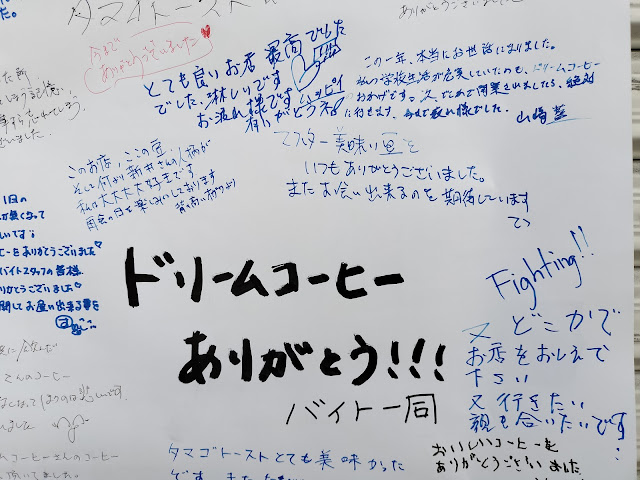 タマゴトースト
ありがとうございました
今まで
ありがとうございました
とても良いお店 最高でした
でした。淋しいです
お疲れ様です ハッピィ
ありがとうネ
この一年、本当にお世話になりました。
私の学校生活が充実していたのも、ドリームコーヒー
おかげです。次、どこかで開業されましたら、絶対
に行きます。今まで疲れ様でした。
マスター美味い豆を
いつもありがとうございました。
またお会い出来るのを期待しています
このお店、ここの豆、
そして何より新井さんの人柄が
私は大大大大好きです
再会の日を楽しみにしております
1日の
が無くなって
しいです
ヒーをありがとうございました
バイトスタッフの皆様、
りがとうございました
開してお会い出来る事を
ドリームコーヒー
ありがとう!!!
バイト一同
Fighting!!
又どこかで
お店をおしえて
下さい
又行きたい
親も会いたいです
おいしいコーヒーを
ありがとうございました
てんのコーヒー
なくなってしまうのは悲しいです。
ムコーヒーさんのコーヒー
頂いてました。
タマゴトーストとても美味かった
です